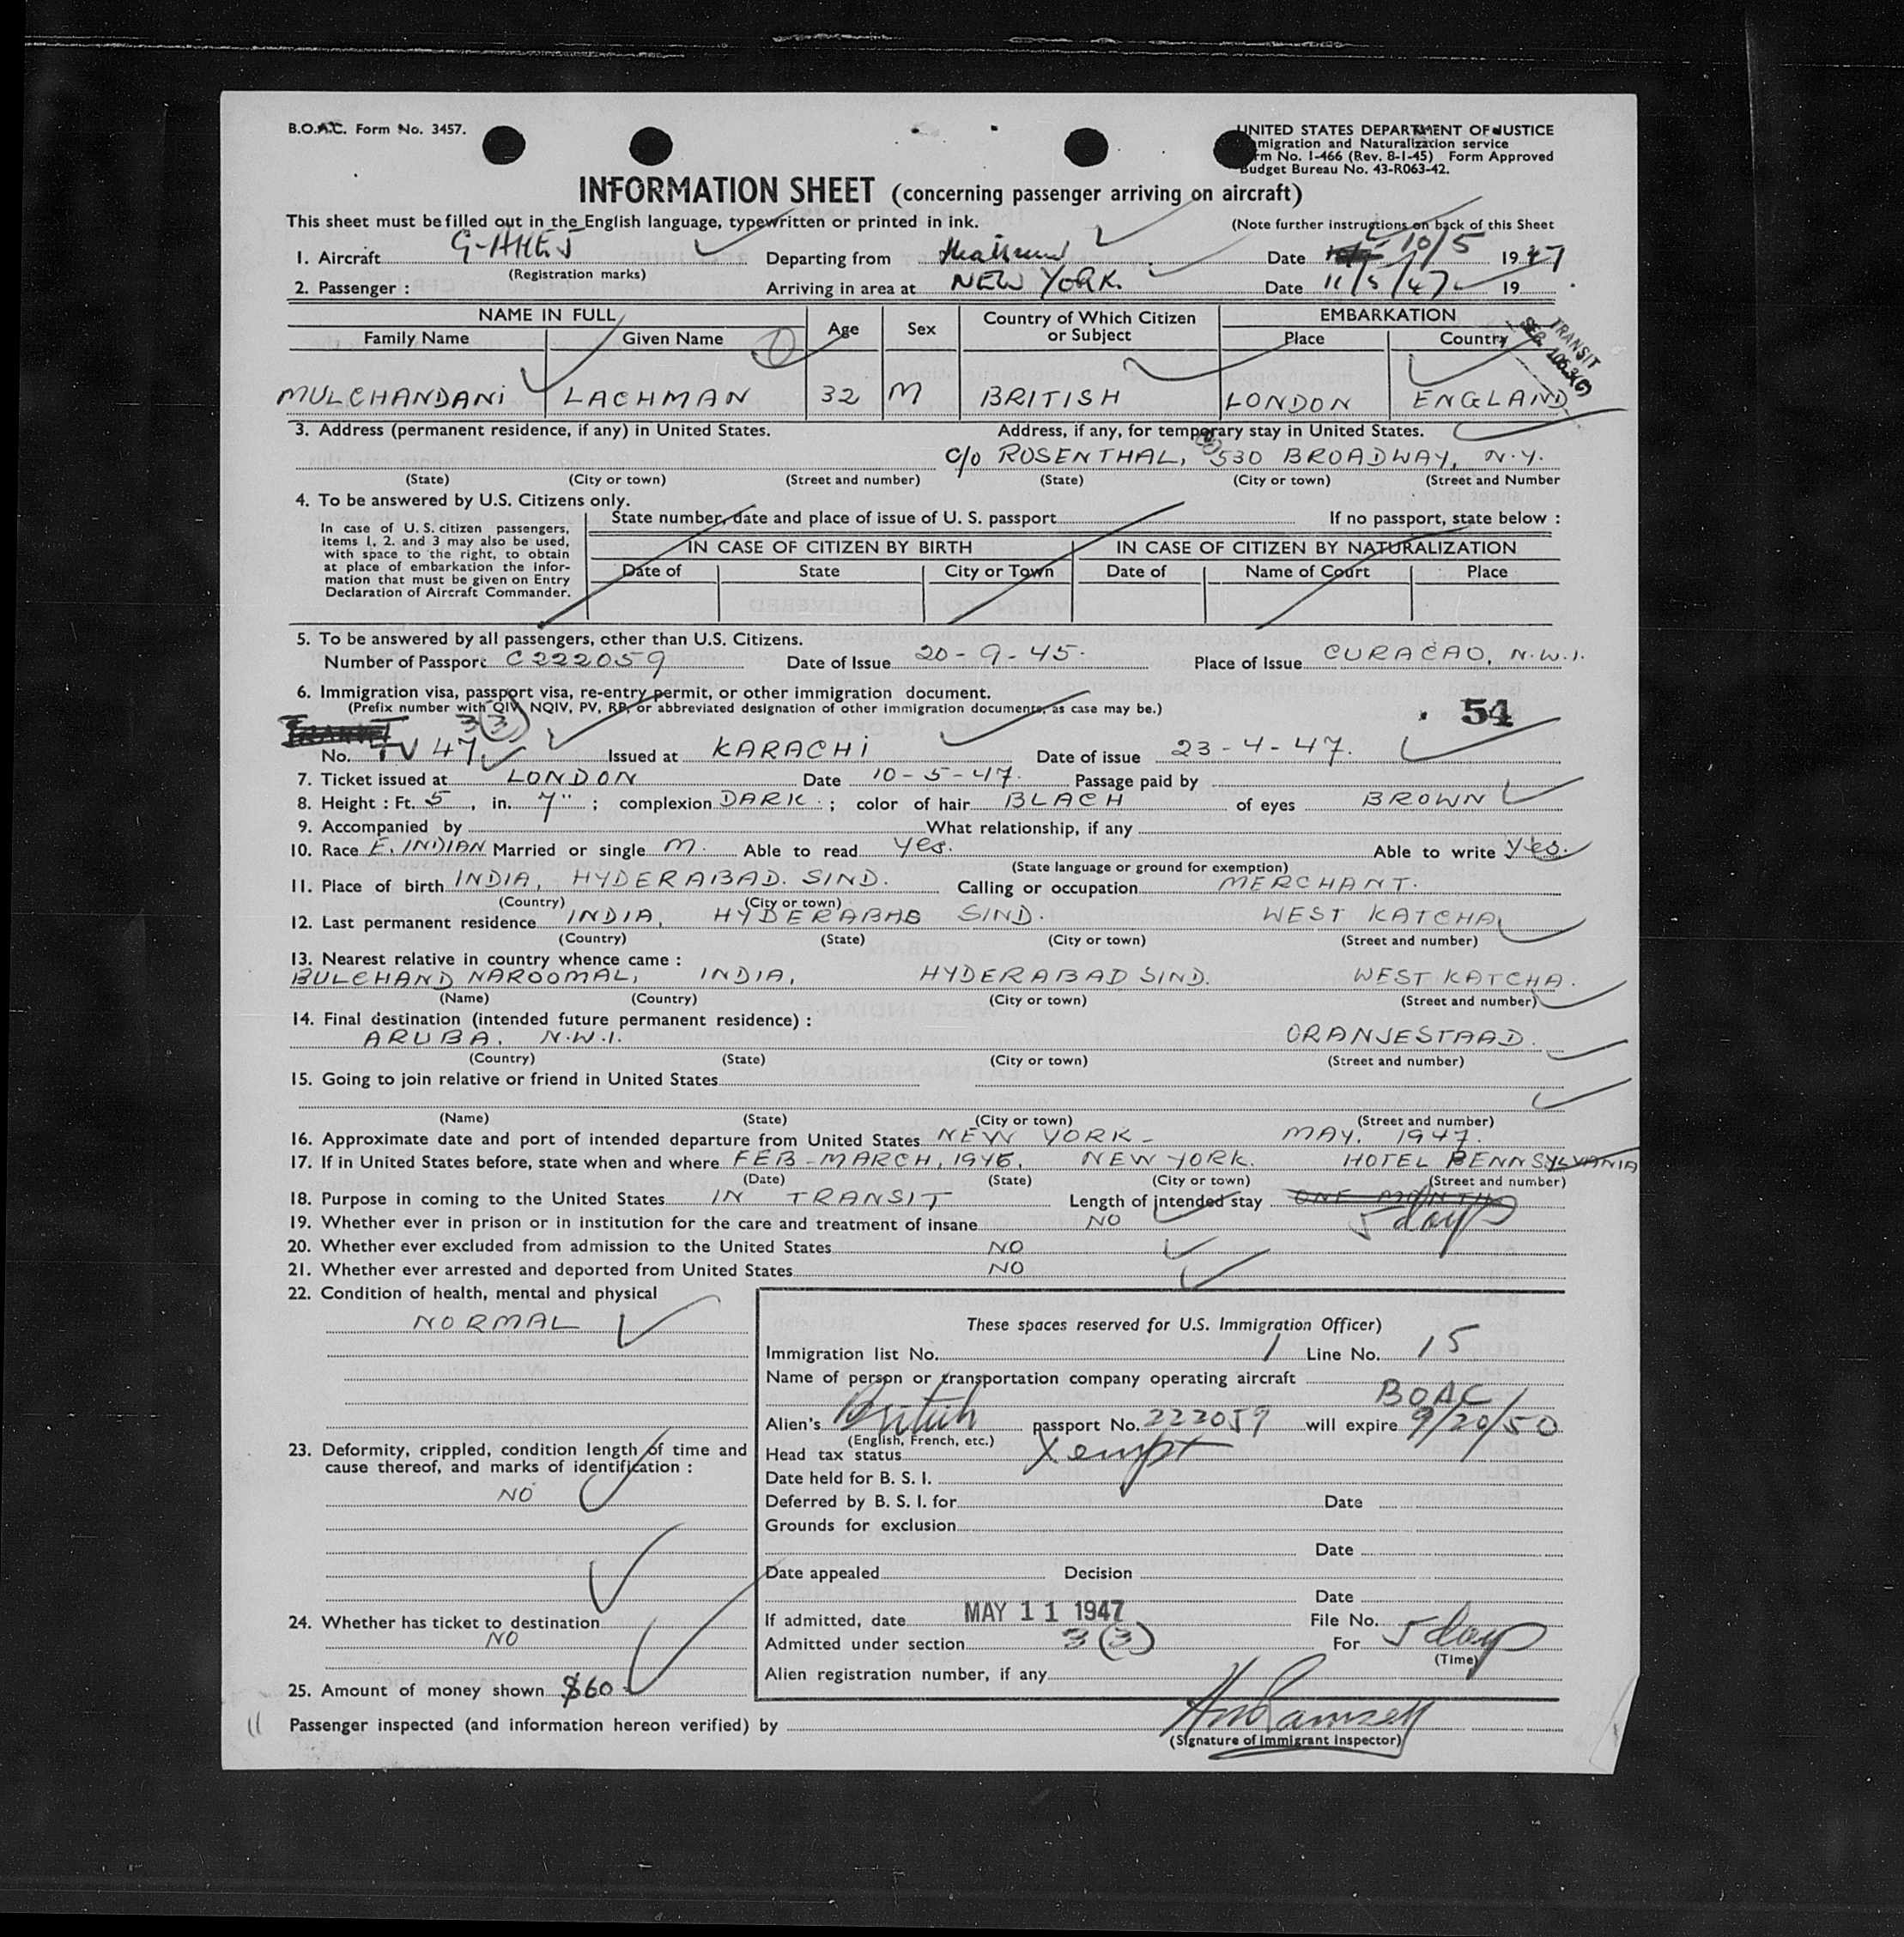 B.O.A.C. Form No. 3457.
UNITED STATES DEPARTMENT OF JUSTICE
migration and Naturalization service
rm No. I-466 (Rev. 8-1-45) Form Approved
Budget Bureau No. 43-R063-42.
INFORMATION SHEET (concerning passenger arriving on aircraft)
This sheet must be filled out in the English language, typewritten or printed in ink.
(Note further instructions on back of this Sheet
1. Aircraft G-AHEJ Departing from Heathrow Date 10/5 1947
(Registration marks)
2. Passenger : Arriving in area at NEW YORK. Date 11/5/47 19
NAME IN FULL Age Sex Country of Which Citizen or Subject EMBARKATION
Family Name Given Name Place Country
TRANSIT
SEC. 105.3(5)
MULCHANDANI LACHMAN 32 M BRITISH LONDON ENGLAND
3. Address (permanent residence, if any) in United States. Address, if any, for temporary stay in United States.
C/o ROSENTHAL, 530 BROADWAY, N.Y.
(State) (City or town) (Street and number) (State) (City or town) (Street and Number
4. To be answered by U.S. Citizens only.
In case of U.S. citizen passengers,
items 1, 2. and 3 may also be used,
with space to the right, to obtain
at place of embarkation the infor-
mation that must be given on Entry
Declaration of Aircraft Commander.
State number, date and place of issue of U. S. passport If no passport, state below :
IN CASE OF CITIZEN BY BIRTH IN CASE OF CITIZEN BY NATURALIZATION
Date of State City or Town Date of Name of Court Place
5. To be answered by all passengers, other than U.S. Citizens.
Number of Passport C222059 Date of Issue 20-9-45. Place of Issue CURACAO, N.W.I.
6. Immigration visa, passport visa, re-entry permit, or other immigration document.
(Prefix number with QIV, NQIV, PV, RP, or abbreviated designation of other immigration documents, as case may be.)
3(3)
54
No. TV 47 Issued at KARACHI Date of issue 23-4-47.
7. Ticket issued at LONDON Date 10-5-47. Passage paid by
8. Height : Ft. 5, in. 7" ; complexion DARK. ; color of hair BLACH of eyes BROWN
9. Accompanied by What relationship, if any
10. Race E. INDIAN Married or single M. Able to read yes. Able to write yes.
(State language or ground for exemption)
11. Place of birth INDIA, HYDERABAD. SIND. Calling or occupation MERCHANT.
(Country) (City or town)
12. Last permanent residence INDIA, HYDERABAD SIND. WEST KATCHA
(Country) (State) (City or town) (Street and number)
13. Nearest relative in country whence came :
BULCHAND NAROOMAL, INDIA, HYDERABAD SIND. WEST KATCHA.
(Name) (Country) (City or town) (Street and number)
14. Final destination (intended future permanent residence) :
ARUBA, N.W.I. ORANJESTAAD.
(Country) (State) (City or town) (Street and number)
15. Going to join relative or friend in United States
(Name) (State) (City or town) (Street and number)
16. Approximate date and port of intended departure from United States NEW YORK - MAY. 1947.
17. If in United States before, state when and where FEB-MARCH, 1946, NEW YORK. HOTEL PENNSYLVANIA
(Date) (State) (City or town) (Street and number)
18. Purpose in coming to the United States IN TRANSIT Length of intended stay ONE MONTH 5 days
19. Whether ever in prison or in institution for the care and treatment of insane NO
20. Whether ever excluded from admission to the United States NO
21. Whether ever arrested and deported from United States NO
22. Condition of health, mental and physical
NORMAL
23. Deformity, crippled, condition length of time and
cause thereof, and marks of identification :
NO
24. Whether has ticket to destination
NO
25. Amount of money shown $60.
These spaces reserved for U.S. Immigration Officer)
Immigration list No. 1 Line No. 15
Name of person or transportation company operating aircraft
BOAC
Alien's British passport No. 222059 will expire 9/20/50
(English, French, etc.)
Head tax status Xempt
Date held for B. S. I.
Deferred by B. S. I. for Date
Grounds for exclusion
Date
Date appealed Decision
Date
If admitted, date MAY 11 1947 File No.
Admitted under section 3(3) For 5 days
(Time)
Alien registration number, if any
Passenger inspected (and information hereon verified) by
(Signature of Immigrant Inspector)